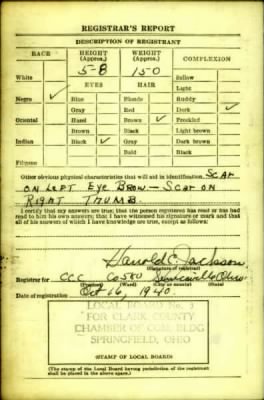 REGISTRAR'S REPORT
DESCRIPTION OF REGISTRANT
RACE HEIGHT (Approx.) WEIGHT (Approx.) COMPLEXION
5-8 150
White Sallow
EYES HAIR Light
Negro ✓ Blue Blonde Ruddy
Gray Red Dark ✓
Oriental Hazel Brown ✓ Freckled
Brown Black Light brown
Indian Black ✓ Gray Dark brown
Bald Black
Filipino
Other obvious physical characteristics that will aid in identification SCAR
ON LEFT Eye BROW — SCAR ON
RIGHT THUMB.
I certify that my answers are true; that the person registered has read or has had
read to him his own answers; that I have witnessed his signature or mark and that
all of his answers of which I have knowledge are true, except as follows:
Harold C. Jackson
(Signature of registrar)
Registrar for CCC Co 580 Ohio
(Precinct) (Ward) (City or county) (State)
Date of registration Oct 16, 1940.
LOCAL BOARD No.
FOR CLARK COUNTY
CHAMBER OF COM. BLDG
SPRINGFIELD, OHIO
(STAMP OF LOCAL BOARD)
(The stamp of the Local Board having jurisdiction of the registrant
shall be placed in the above space.)